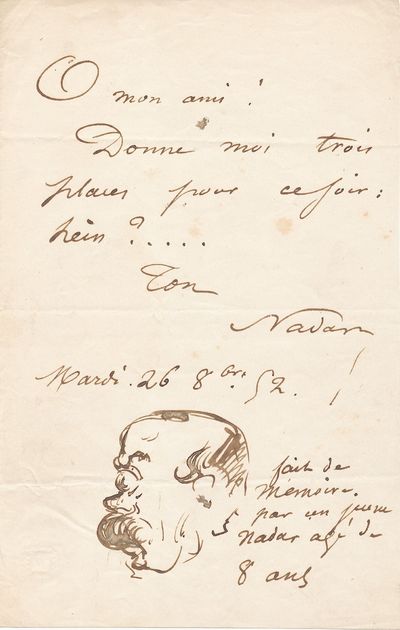 O mon ami !
Donne moi trois
places pour ce soir :
hein ?.....
Ton
Nadar
Mardi. 26 8bre 52.
fait de
mémoire.
par un jeune
Nadar agé de
8 ans